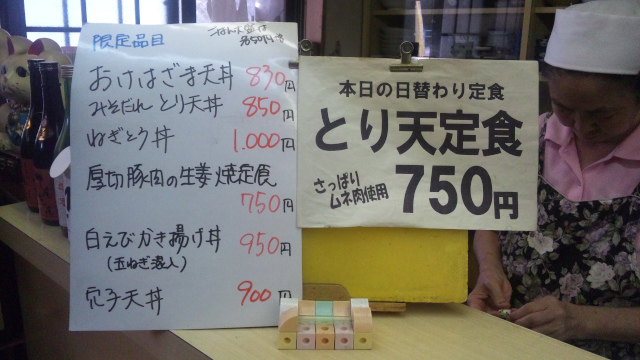 限定品目
ごはん大盛は
各50円増
おけはざま天丼 830円
みそだれ とり天丼 850円
ねぎとろ丼 1.000円
厚切豚肉の生姜焼定食
750円
白えびかき揚げ丼 950円
(玉ねぎ混入)
穴子天丼 900円
本日の日替わり定食
とり天定食
さっぱり
ムネ肉使用
750円